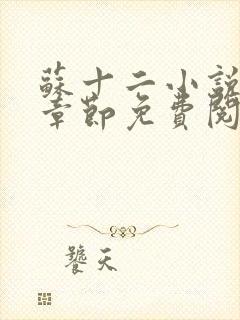 蘇十二小說
章節免費閱
饕天